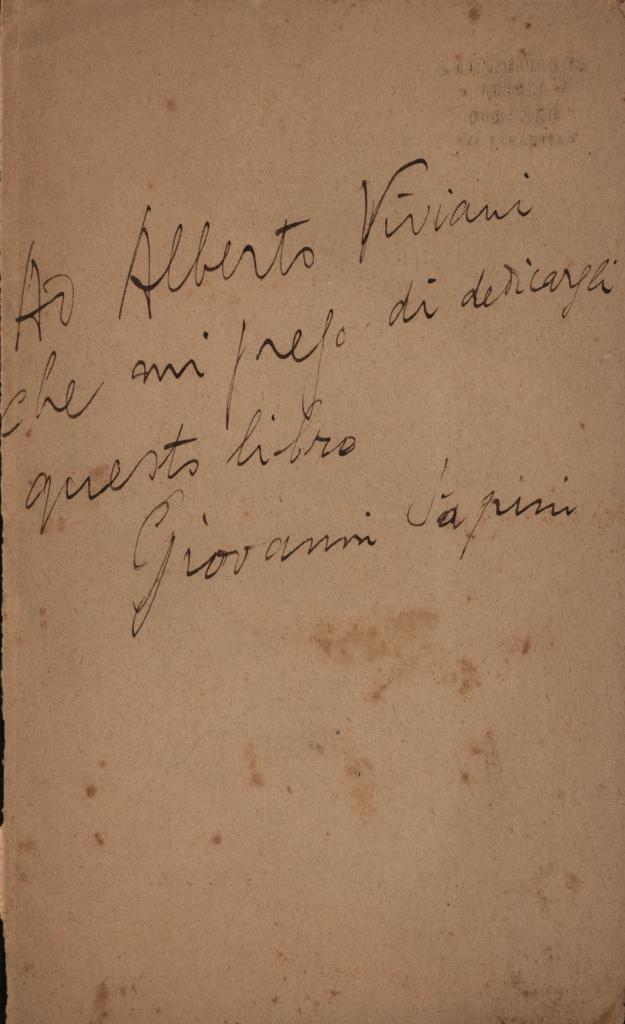 FIRENZE
Ad Alberto Viviani
che mi pregò di dedicargli
questo libro
Giovanni Papini